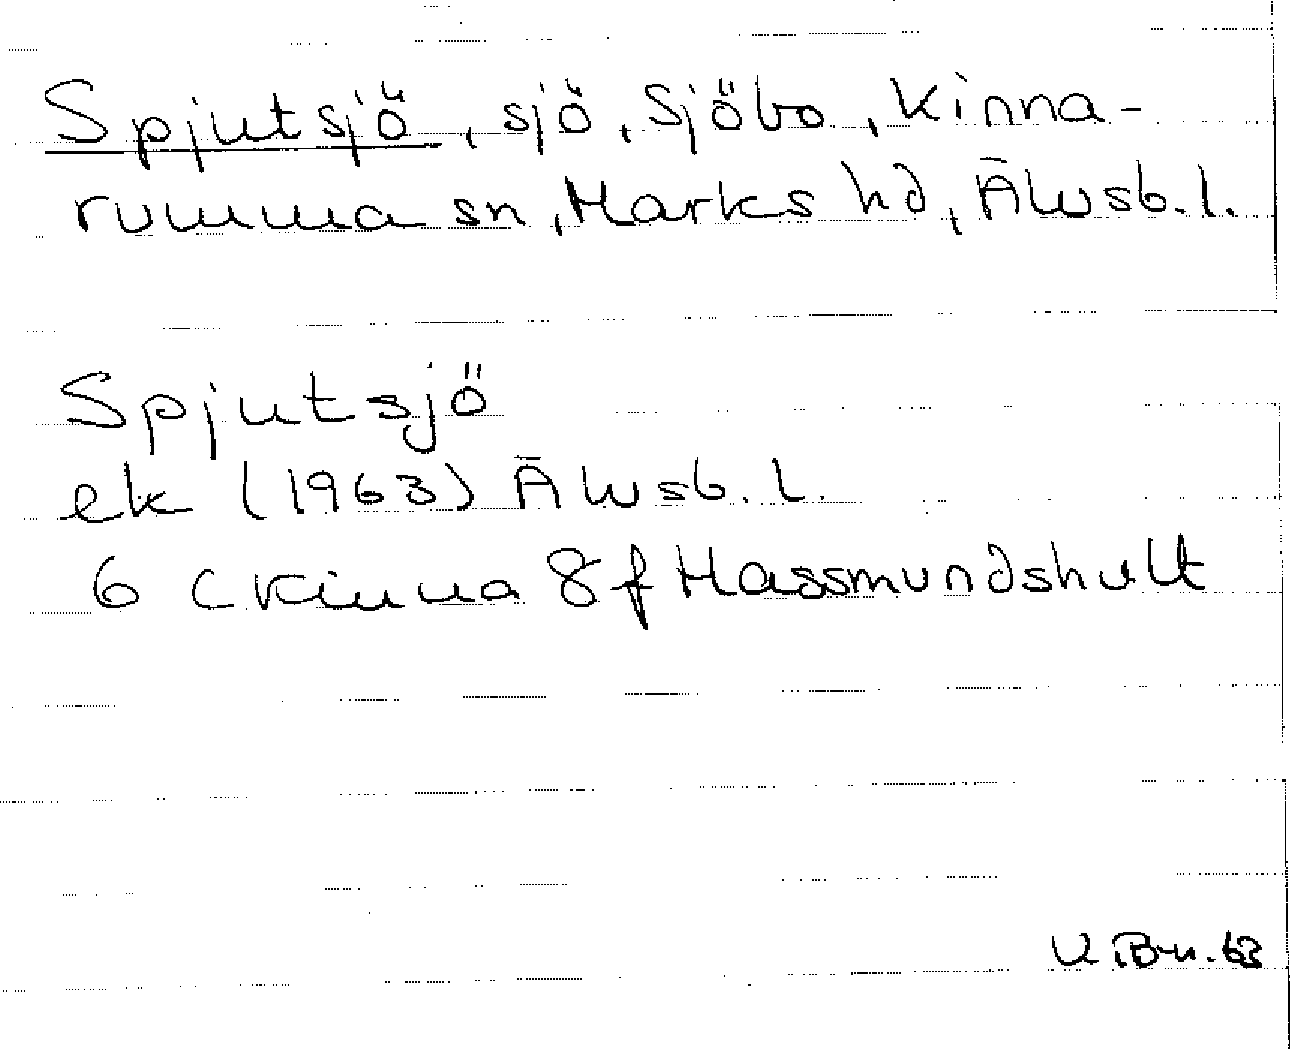 Spjutsjö, sjö, Sjöbo, Kinna-
rumma sn, Marks hd, Älvsb. l.
Spjutsjö
ek (1963) Älvsb. l.
6 C Kinna 8 f Hassmundshult